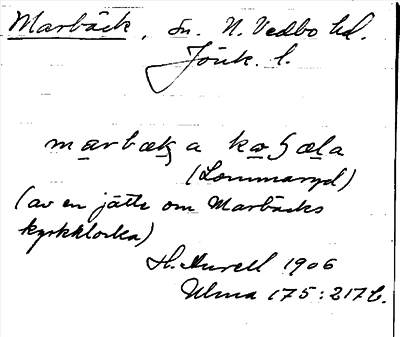 Marbäck, sn. N. Vedbo hd.
Jönk. l.
marbæk a
(Lommaryd)
(av en jätte om Marbäcks
kyrkklocka)
H. Aurell 1906
Ulma 175:217 b.